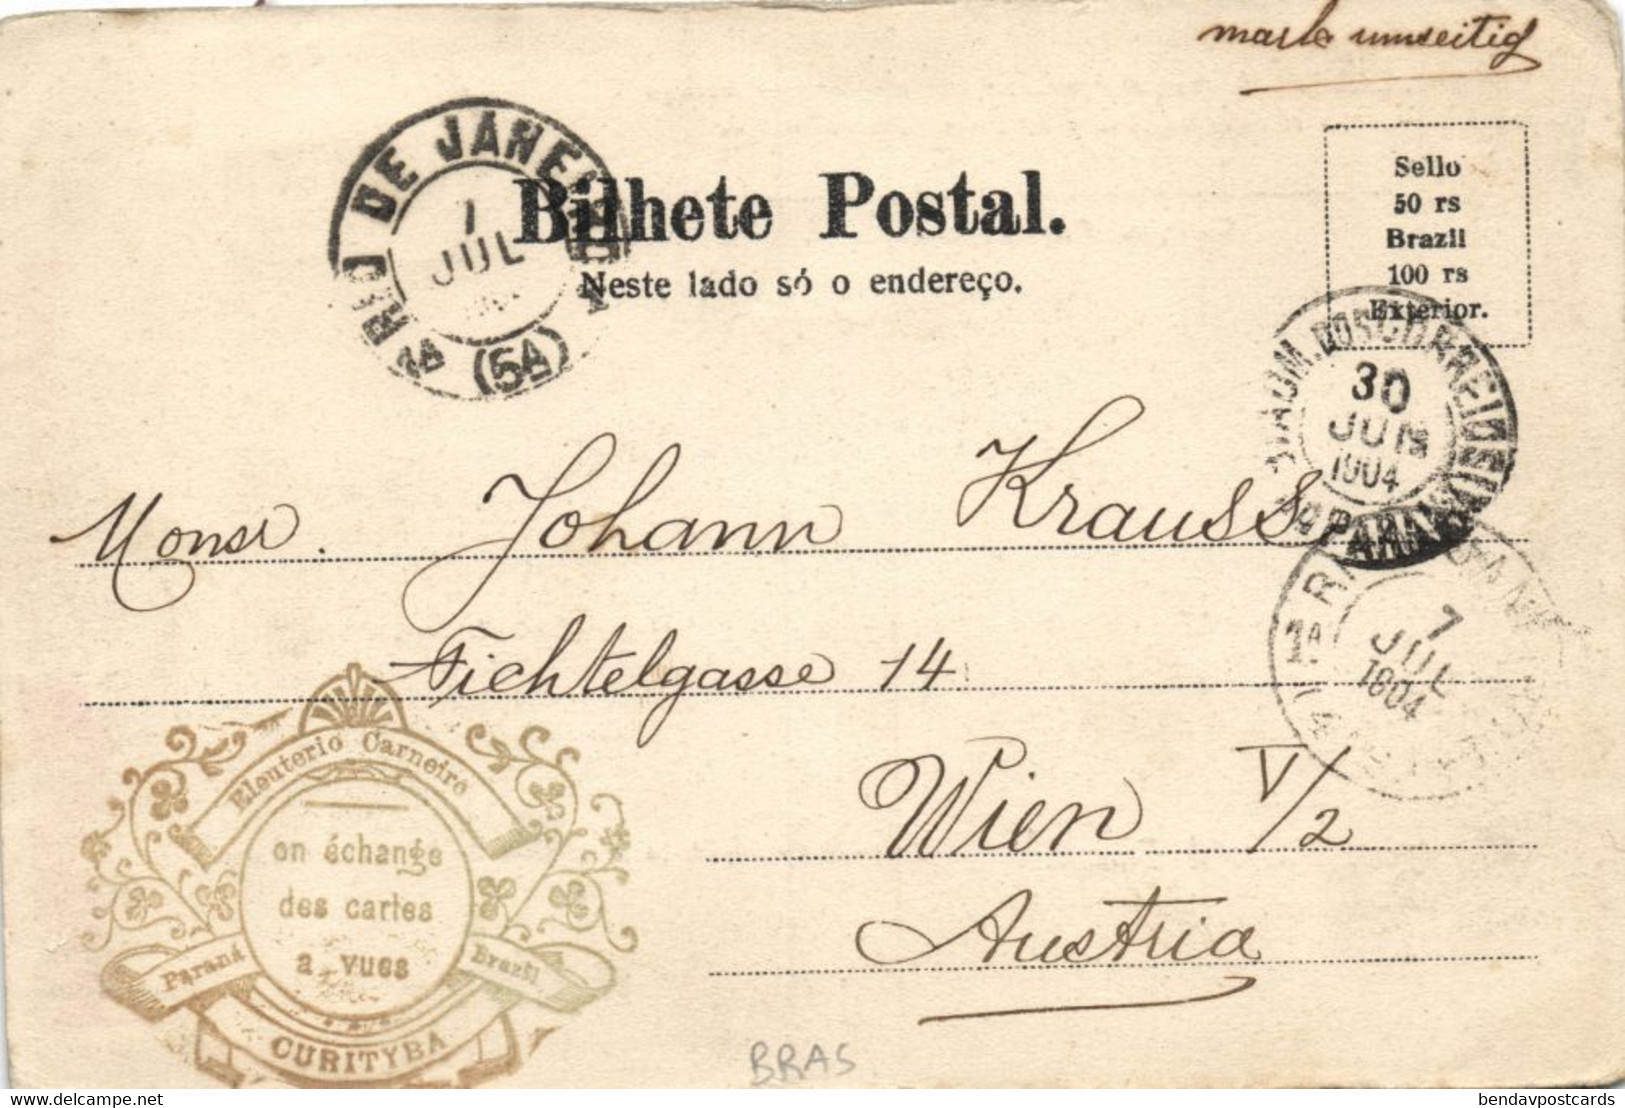 marke umseitig
RIO DE JANEIRO
7
JUL
(5A)
Bilhete Postal.
Neste lado só o endereço.
Sello
50 rs
Brazil
100 rs
Exterior.
ADM. DOS CORREIOS
30
JUN
1904
PARANÁ
7
JUL
1904
1A
Monsr. Johann Krauss
Fichtelgasse 14
Wien V/2
Austria
Eleuterio Carneiro
on échange
des cartes
a vues
Paraná
Brazil
CURITYBA
BRAS
www.delcampe.net
bendavpostcards